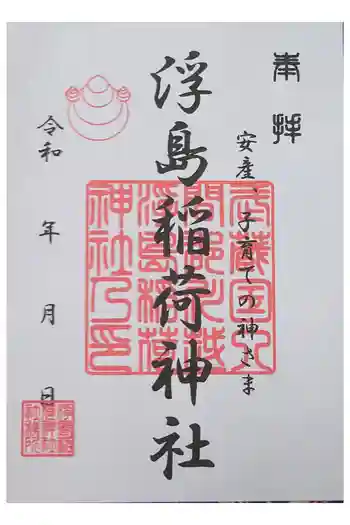 奉拝
安産、子育ての神さま
浮島稲荷神社
令和　年　月　日